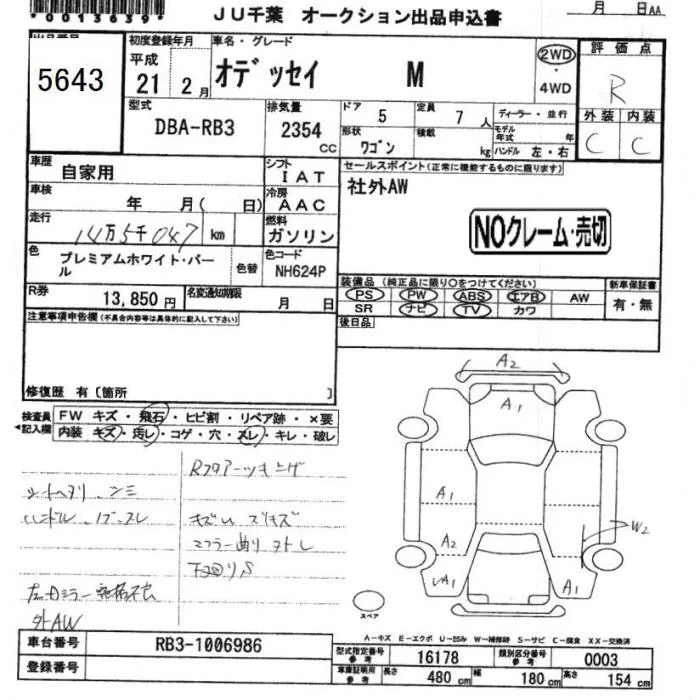 *0013639*
JU千葉 オークション出品申込書
月 日AA
出品番号
5643
初度登録年月
平成
21 2月
車名・グレード
オデッセイ M
2WD
・
4WD
評価点
R
外装 内装
C C
型式
DBA-RB3
排気量
2354
cc
ドア 5
定員 7人
形状 ワゴン
積載 kg
ディーラー・並行
モデル年式 年
ハンドル 左・右
車歴 自家用
シフト
IAT
車検 年 月( 日)
冷房
AAC
走行 14万5千047 km
燃料
ガソリン
色 プレミアムホワイト・パール
色替
色コード
NH624P
R券 13,850円
名変通知期限 月 日
セールスポイント(正常に機能するものに限ります)
社外AW
NOクレーム・売切
装備品(純正品に限り○をつけてください)
PS PW ABS エアB AW
SR ナビ TV カワ
新車保証書
有・無
後日品
注意事項申告欄(不具合内容等は具体的に記入して下さい)
修復歴 有〔箇所 〕
検査員記入欄
FW キズ・飛石・ヒビ割・リペア跡・×要
内装 キズ・汚レ・コゲ・穴・スレ・キレ・破レ
ハンドル
キズ
マフラー曲り
下回りS
外AW
A2
A1
A1
A2
A1
A1
W2
スペア
A－キズ E－エクボ U－凹み W－補修跡 S－サビ C－腐食 XX－交換済
車台番号 RB3-1006986
登録番号
型式指定番号 参考 16178
類別区分番号 参考 0003
車庫証明用 参考
長さ 480 cm
幅 180 cm
高さ 154 cm